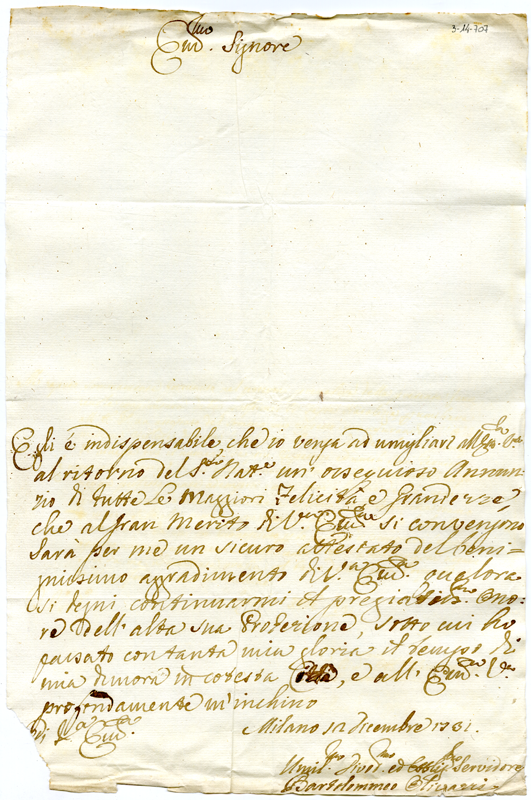 3-14-707
Em.mo Signore
Egli è indispensabile che io venga ad umigliari all'Em.za V.ra
al ritorno del S.mo Nat.e un ossequioso Annun=
zio di tutte le Maggiori Felicità e Grandezze,
che al gran Merito di V.ra Em.za si convengono
Sarà per me un sicuro attestato del beni=
gnissimo agradimento di V.a Em.za qualora
si degni continuarmi il pregiabilis.o Ono=
re dell'alta sua Protezione, sotto cui ho
passato con tanta mia gloria il tempo di
mia dimora in cotesta Città, e all'Em.za V.ra
profondamente m'inchino
di V.ra Em.za
Milano 12 Dicembre 1731
Umil.mo Divot.mo ed Obblig.mo Servidore
Bartolommeo